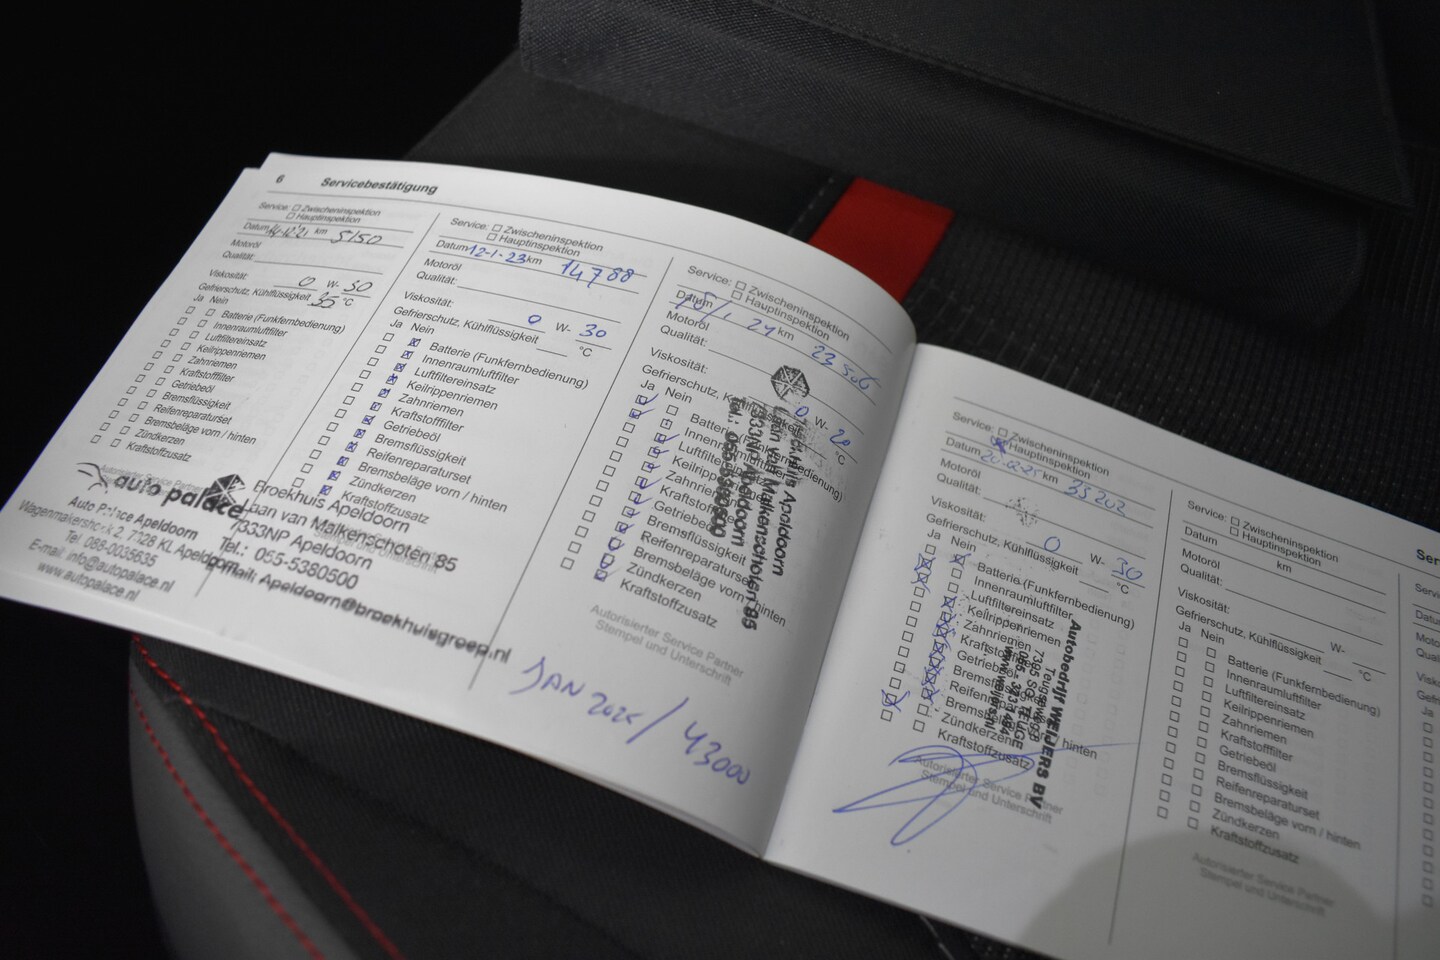 6 Servicebestätigung
Service: Zwischeninspektion
Hauptinspektion
Datum 14-12-21 km 5150
Motoröl
Qualität:
Viskosität: 0 W- 30
Gefrierschutz, Kühlflüssigkeit 35 °C
Ja Nein
Batterie (Funkfernbedienung)
Innenraumluftfilter
Luftfiltereinsatz
Keilrippenriemen
Zahnriemen
Kraftstofffilter
Getriebeöl
Bremsflüssigkeit
Reifenreparaturset
Bremsbeläge vorn / hinten
Zündkerzen
Kraftstoffzusatz
Autorisierter Service Partner
auto palace
Auto Palace Apeldoorn
Wagenmakershoek 2, 7328 KL Apeldoorn
Tel 088-0035635
E-mail info@autopalace.nl
www.autopalace.nl
Service: Zwischeninspektion
Hauptinspektion
Datum 12-1-23 km 14788
Motoröl
Qualität:
Viskosität: 0 W- 30
Gefrierschutz, Kühlflüssigkeit °C
Ja Nein
Batterie (Funkfernbedienung)
Innenraumluftfilter
Luftfiltereinsatz
Keilrippenriemen
Zahnriemen
Kraftstofffilter
Getriebeöl
Bremsflüssigkeit
Reifenreparaturset
Bremsbeläge vorn / hinten
Zündkerzen
Kraftstoffzusatz
Broekhuis Apeldoorn
Laan van Malkenschoten 85
7333NP Apeldoorn
Tel.: 055-5380500
Email: Apeldoorn@broekhuisgroep.nl
Service: Zwischeninspektion
Hauptinspektion
Datum 24 km 23 506
Motoröl
Qualität:
Viskosität: 0 W- 20
Gefrierschutz, Kühlflüssigkeit °C
Ja Nein
Batterie (Funkfernbedienung)
Innenraumluftfilter
Luftfiltereinsatz
Keilrippenriemen
Zahnriemen
Kraftstofffilter
Getriebeöl
Bremsflüssigkeit
Reifenreparaturset
Bremsbeläge vorn / hinten
Zündkerzen
Kraftstoffzusatz
Autorisierter Service Partner
Stempel und Unterschrift
Broekhuis Apeldoorn
Laan van Malkenschoten 85
7333NP Apeldoorn
Tel.: 055-5380500
JAN / 43000
Service: Zwischeninspektion
Hauptinspektion
Datum 20-02-25 km 35202
Motoröl
Qualität:
Viskosität: 0 W- 30
Gefrierschutz, Kühlflüssigkeit °C
Ja Nein
Batterie (Funkfernbedienung)
Innenraumluftfilter
Luftfiltereinsatz
Keilrippenriemen
Zahnriemen
Kraftstofffilter
Getriebeöl
Bremsflüssigkeit
Reifenreparaturset
Bremsbeläge vorn / hinten
Zündkerzen
Kraftstoffzusatz
Autorisierter Service Partner
Stempel und Unterschrift
Autobedrijf WEIJERS BV
Teugseweg
7395 SG TEUGE
www.weijers.nl
Service: Zwischeninspektion
Hauptinspektion
Datum km
Motoröl
Qualität:
Viskosität: W-
Gefrierschutz, Kühlflüssigkeit °C
Ja Nein
Batterie (Funkfernbedienung)
Innenraumluftfilter
Luftfiltereinsatz
Keilrippenriemen
Zahnriemen
Kraftstofffilter
Getriebeöl
Bremsflüssigkeit
Reifenreparaturset
Bremsbeläge vorn / hinten
Zündkerzen
Kraftstoffzusatz
Autorisierter Service Partner
Stempel und Unterschrift